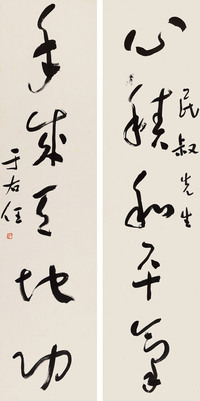 心積和平氣
民叔先生
手成天地功
于右任